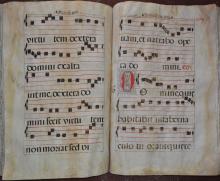 virtu tem dextera
domini exalta
vit me, dextera do
mini fecit virtu tem
non moriar sed vi
uam, et narrabo ope
ra do mini.
Domine quis
habitabit in taberna
culo tuo